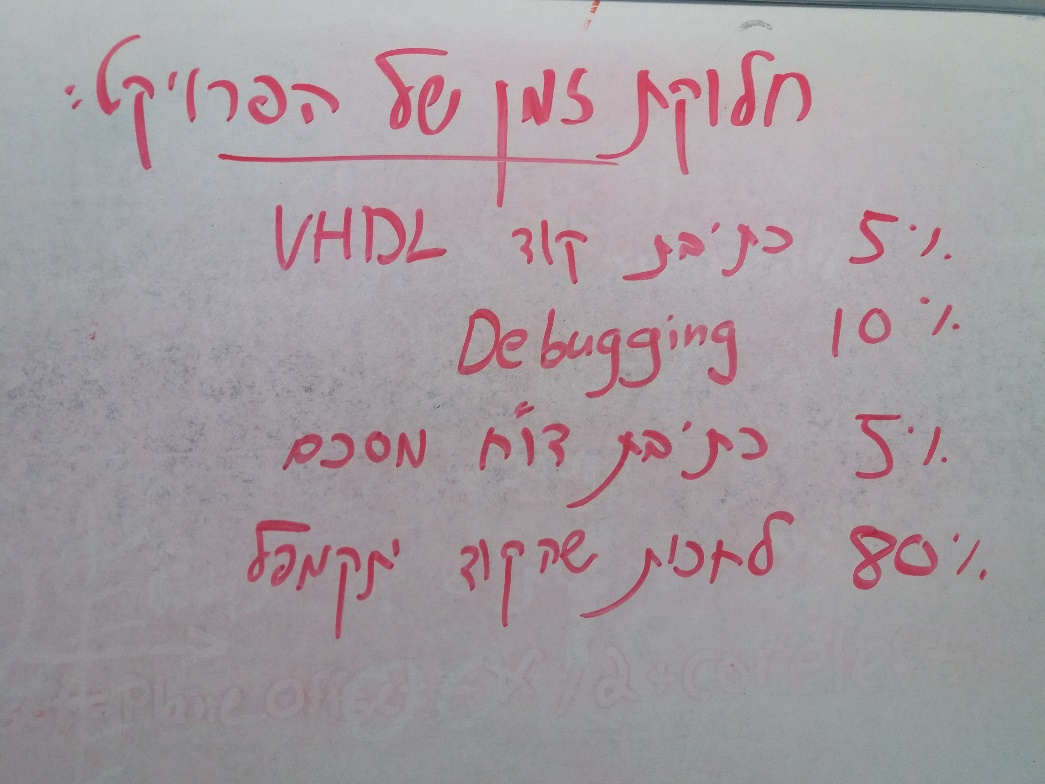 חלוקת זמן של הפרויקט:
5% כתיבת קוד VHDL
10% Debugging
5% כתיבת דו"ח מסכם
80% לחכות שהקוד יתקמפל